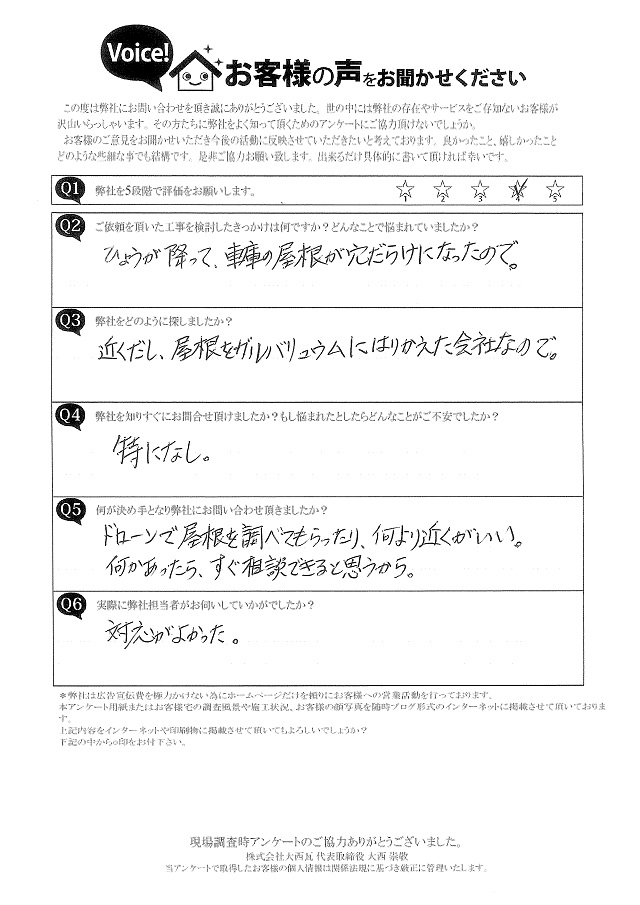 Voice!
お客様の声をお聞かせください
この度は弊社にお問い合わせを頂き誠にありがとうございました。世の中には弊社の存在やサービスをご存知ないお客様が
沢山いらっしゃいます。その方たちに弊社をよく知って頂くためのアンケートにご協力頂けないでしょうか。
お客様のご意見をお聞かせいただき今後の活動に反映させていただきたいと考えております。良かったこと、嬉しかったこと
どのような些細な事でも結構です。是非ご協力お願い致します。出来るだけ具体的に書いて頂ければ幸いです。
Q1 弊社を5段階で評価をお願いします。 ☆1 ☆2 ☆3 ☆4 ☆5
Q2 ご依頼を頂いた工事を検討したきっかけは何ですか？どんなことで悩まれていましたか？
ひょうが降って、車庫の屋根が穴だらけになったので。
Q3 弊社をどのように探しましたか？
近くだし、屋根をガルバリュウムにはりかえた会社なので。
Q4 弊社を知りすぐにお問合せ頂けましたか？もし悩まれたとしたらどんなことがご不安でしたか？
特になし。
Q5 何が決め手となり弊社にお問い合わせ頂きましたか？
ドローンで屋根を調べてもらったり、何より近くがいい。
何かあったら、すぐ相談できると思うから。
Q6 実際に弊社担当者がお伺いしていかがでしたか？
対応がよかった。
＊弊社は広告宣伝費を極力かけない為にホームページだけを頼りにお客様への営業活動を行っております。
本アンケート用紙またはお客様宅の調査風景や施工状況、お客様の顔写真を随時ブログ形式のインターネットに掲載させて頂いておりま
す。
上記内容をインターネットや印刷物に掲載させて頂いてもよろしいでしょうか？
下記の中から○印をお付下さい。
現場調査時アンケートのご協力ありがとうございました。
株式会社大西瓦 代表取締役 大西 崇敬
当アンケートで取得したお客様の個人情報は関係法規に基づき厳正に管理いたします。